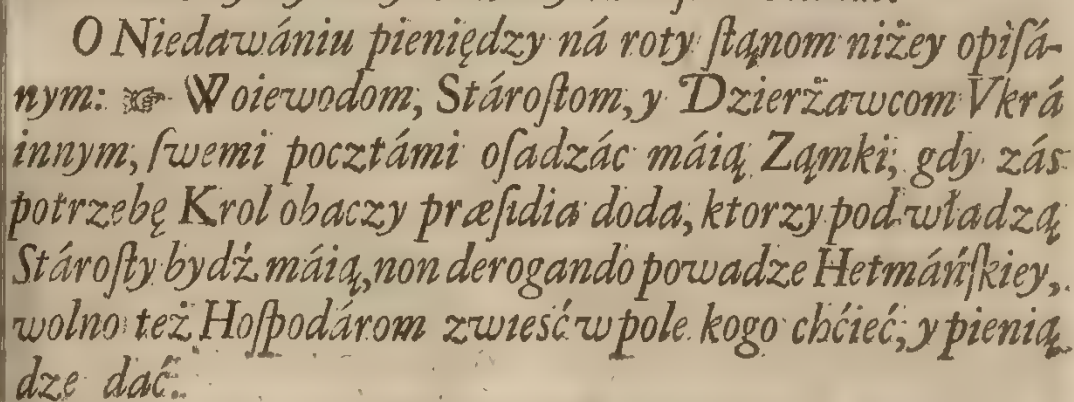 O Niedawániu pieniędzy ná roty ſtąnom niżey opiſá-
nym: ☞ Woiewodom, Stároſtom, y Dzierżawcom Vkrá
innym, ſwemi pocztámi oſadzác máią Ząmki, gdy zás
potrzebę Krol obaczy præſidia doda, ktorzy pod władzą
Stároſty bydź máią, non derogando powadze Hetmáńſkiey,
wolno też Hoſpodárom zwieść w pole kogo chćieć, y pienią
dze dać.